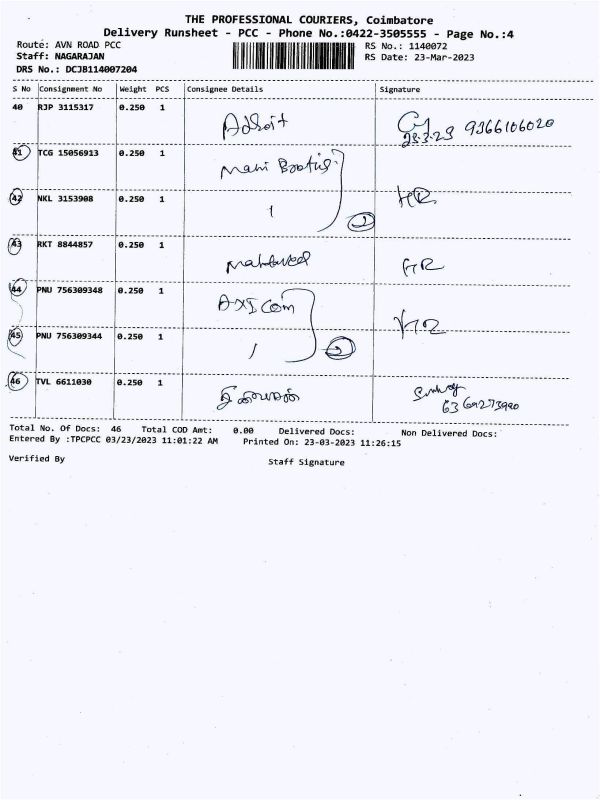 THE PROFESSIONAL COURIERS, Coimbatore
Delivery Runsheet - PCC - Phone No.:0422-3505555 - Page No.:4
Route: AVN ROAD PCC RS No.: 1140072
Staff: NAGARAJAN RS Date: 23-Mar-2023
DRS No.: DCJB114007204
S No Consignment No Weight PCS Consignee Details Signature
40 RJP 3115317 0.250 1 Adroit 23-3-23 9366106020
41 TCG 15056913 0.250 1 Mani
42 NKL 3153908 0.250 1 2
43 RKT 8844857 0.250 1
44 PNU 756309348 0.250 1 AXI Com
45 PNU 756309344 0.250 1 2
46 TVL 6611030 0.250 1
Total No. Of Docs: 46 Total COD Amt: 0.00 Delivered Docs: Non Delivered Docs:
Entered By :TPCPCC 03/23/2023 11:01:22 AM Printed On: 23-03-2023 11:26:15
Verified By Staff Signature